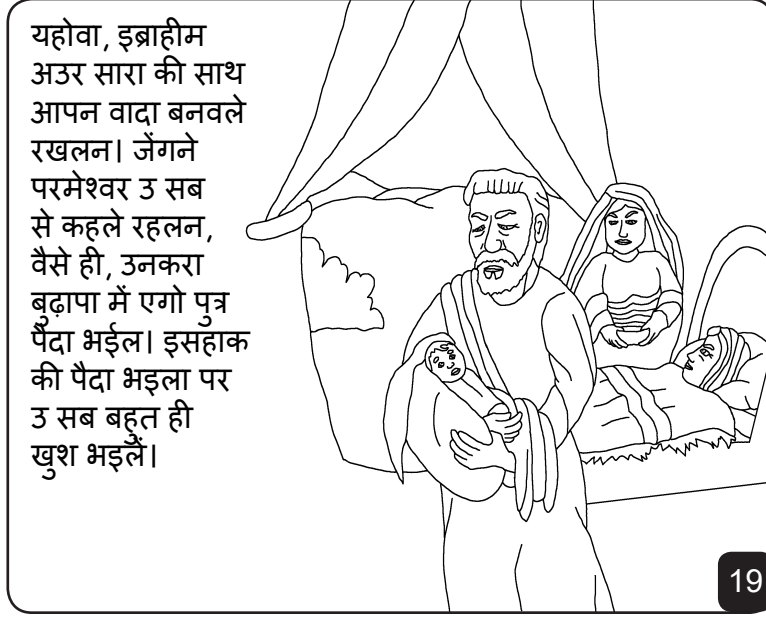 यहोवा, इब्राहीम
अउर सारा की साथ
आपन वादा बनवले
रखलन। जेंगने
परमेश्वर उ सब
से कहले रहलन,
वैसे ही, उनकरा
बुढ़ापा में एगो पुत्र
पैदा भईल। इसहाक
की पैदा भइला पर
उ सब बहुत ही
खुश भइलें।
19